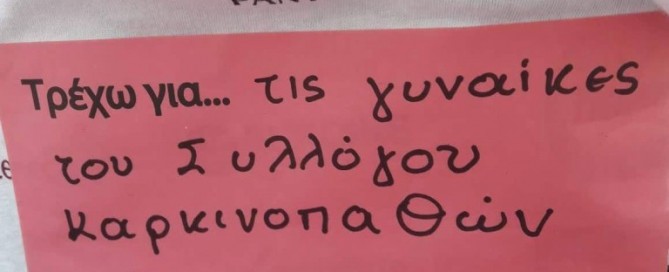 Τρέχω για... τις γυναίκες
του Συλλόγου
καρκινοπαθών